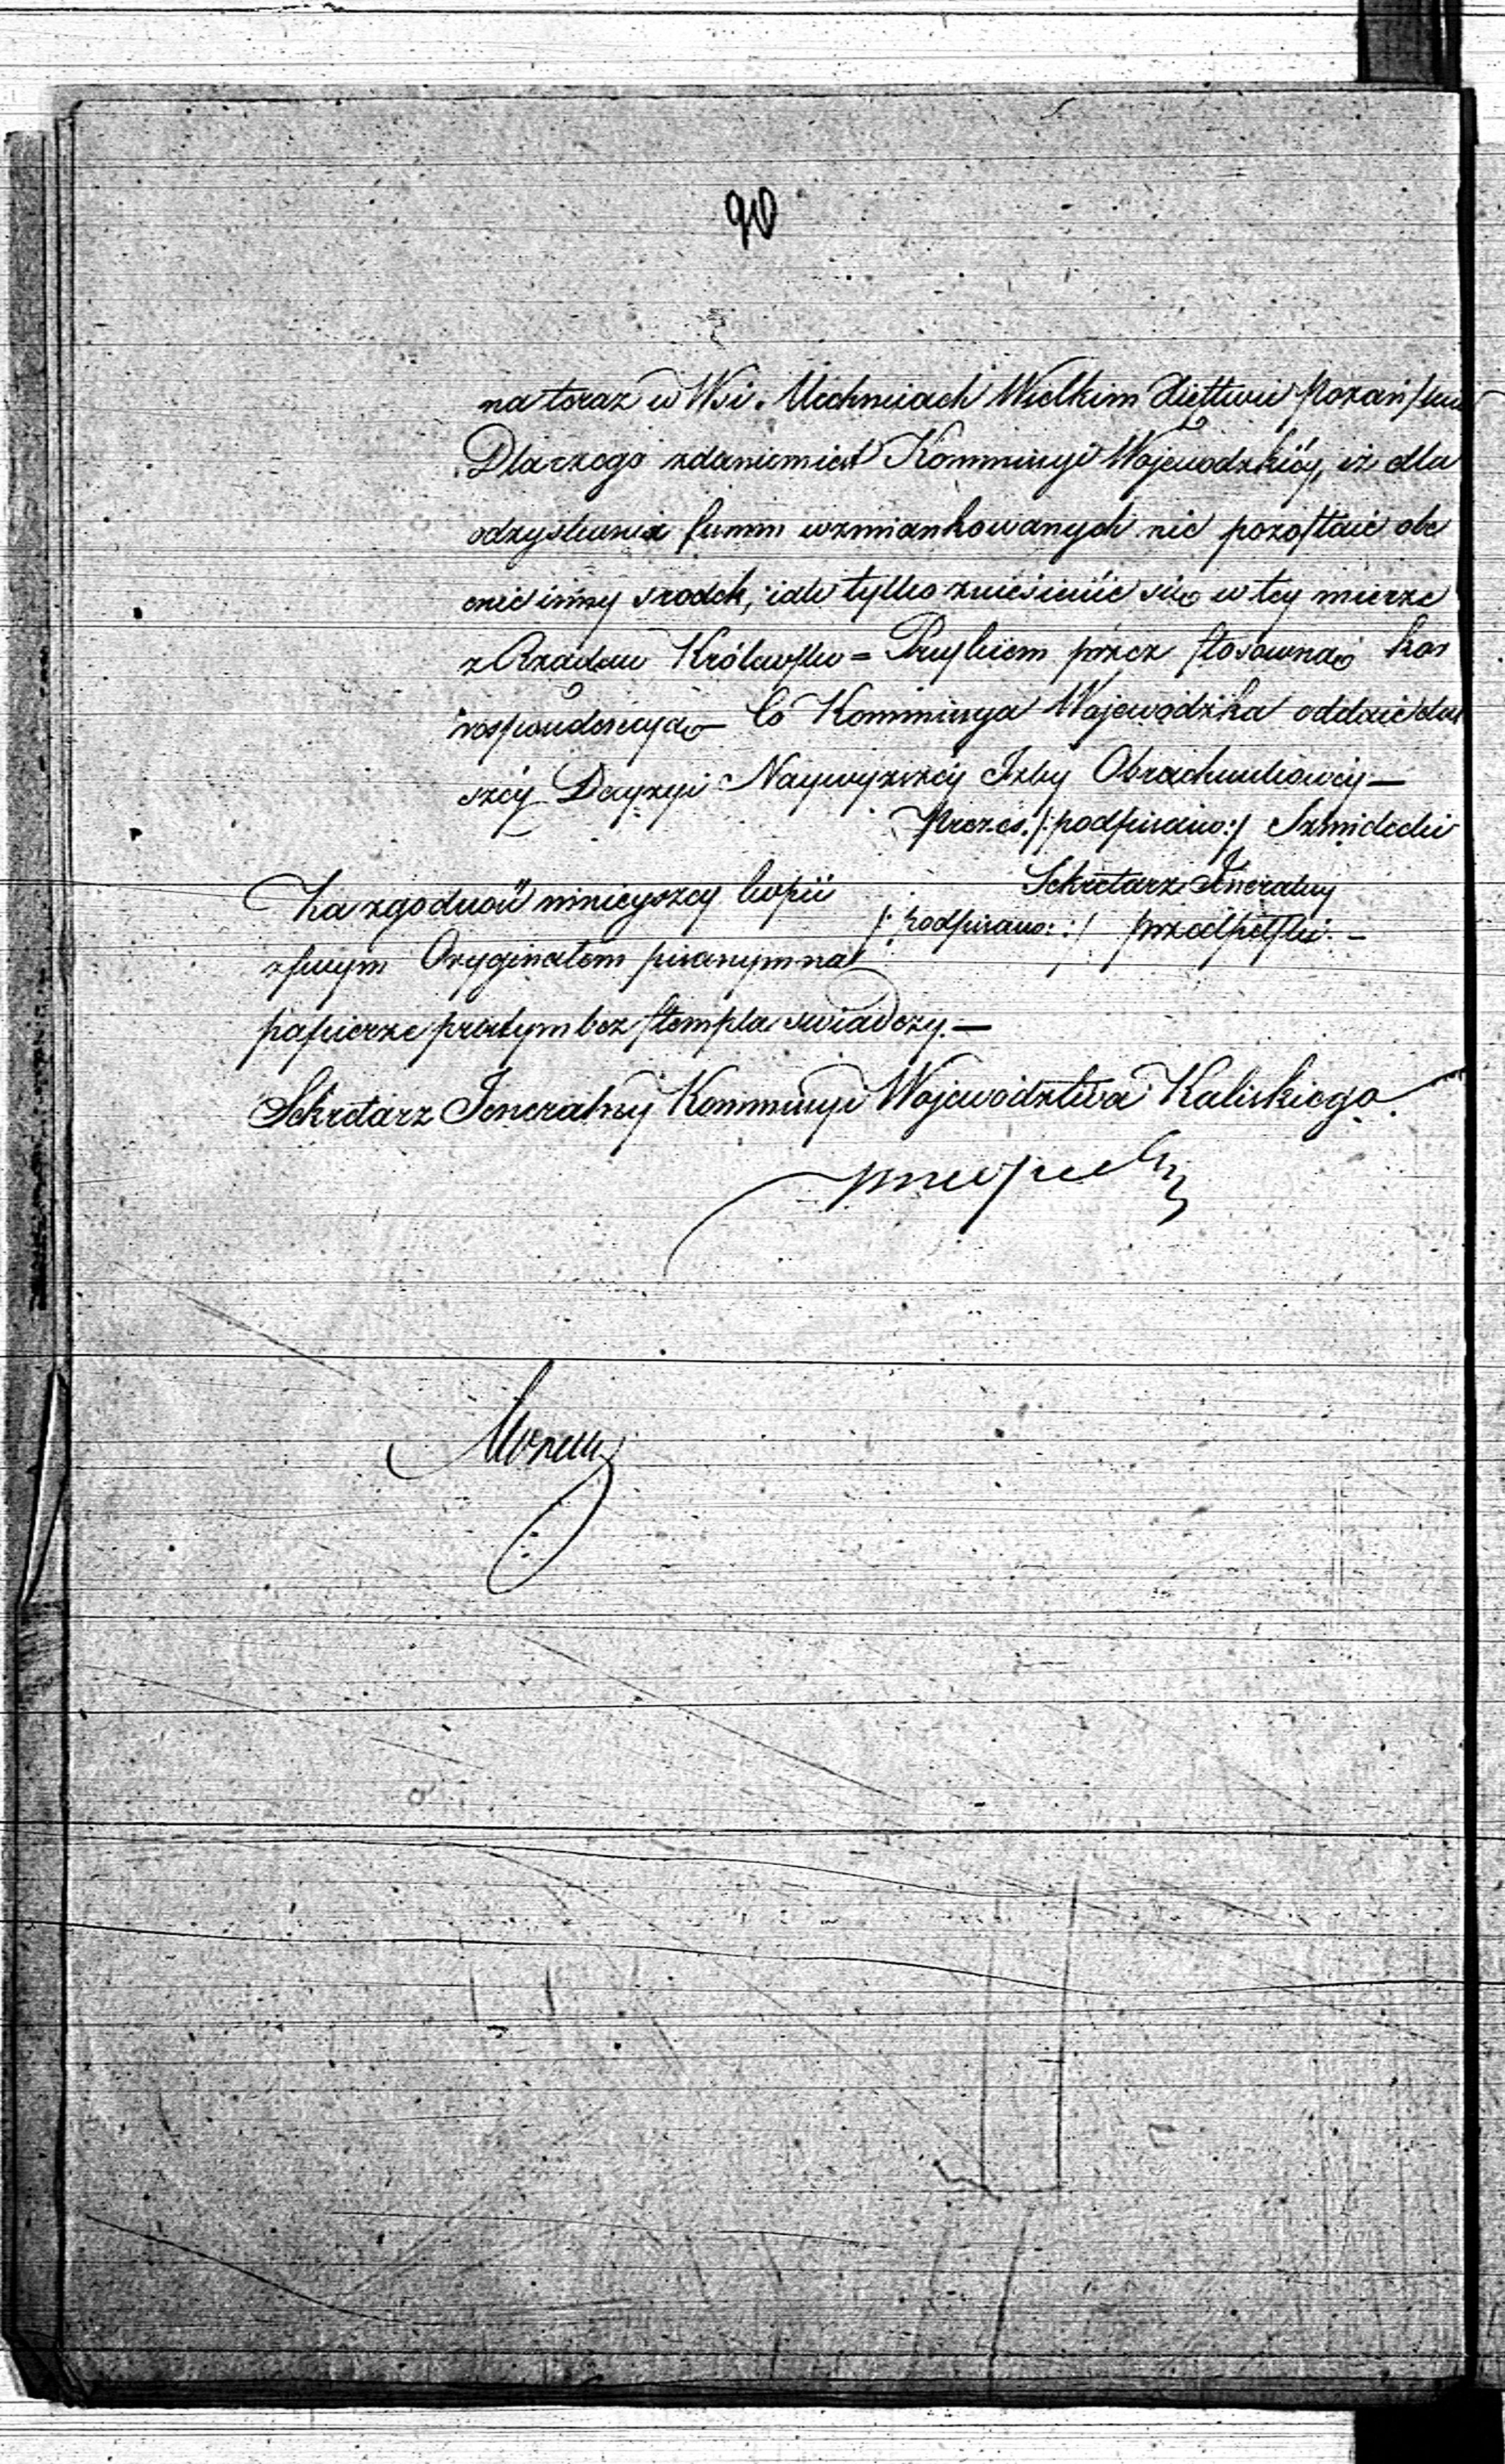 90
na teraz w Wsi Mechniach Wielkim Xięstwie Poznań
Dlaczego zdaniem iest Kommissyi Wojewodzkiéy, iż dla
odzyskania summ wzmiankowanych nie pozostaie obe
cnie inny srodek, iak tylko zniesienie się w tey mierze
z Rządem Królewsko = Pruskiem przez stosowną kor
respondencyą Co Kommissya Wojewódzka oddaie dal
széy Decyzyi Naywyzszéy Izby Obrachunkowéy —
Prezes /:podpisano:/ Szmidecki
Sekretarz Jeneralny
/:podpisano:/ przedpełski. —
Za zgodność ninieyszey kopii
z swym Oryginałem pisanym na
papierze prostym bez stempla swiadczy. —
Sekretarz Jeneralny Kommissyi Wojewodztwa Kaliskiego.